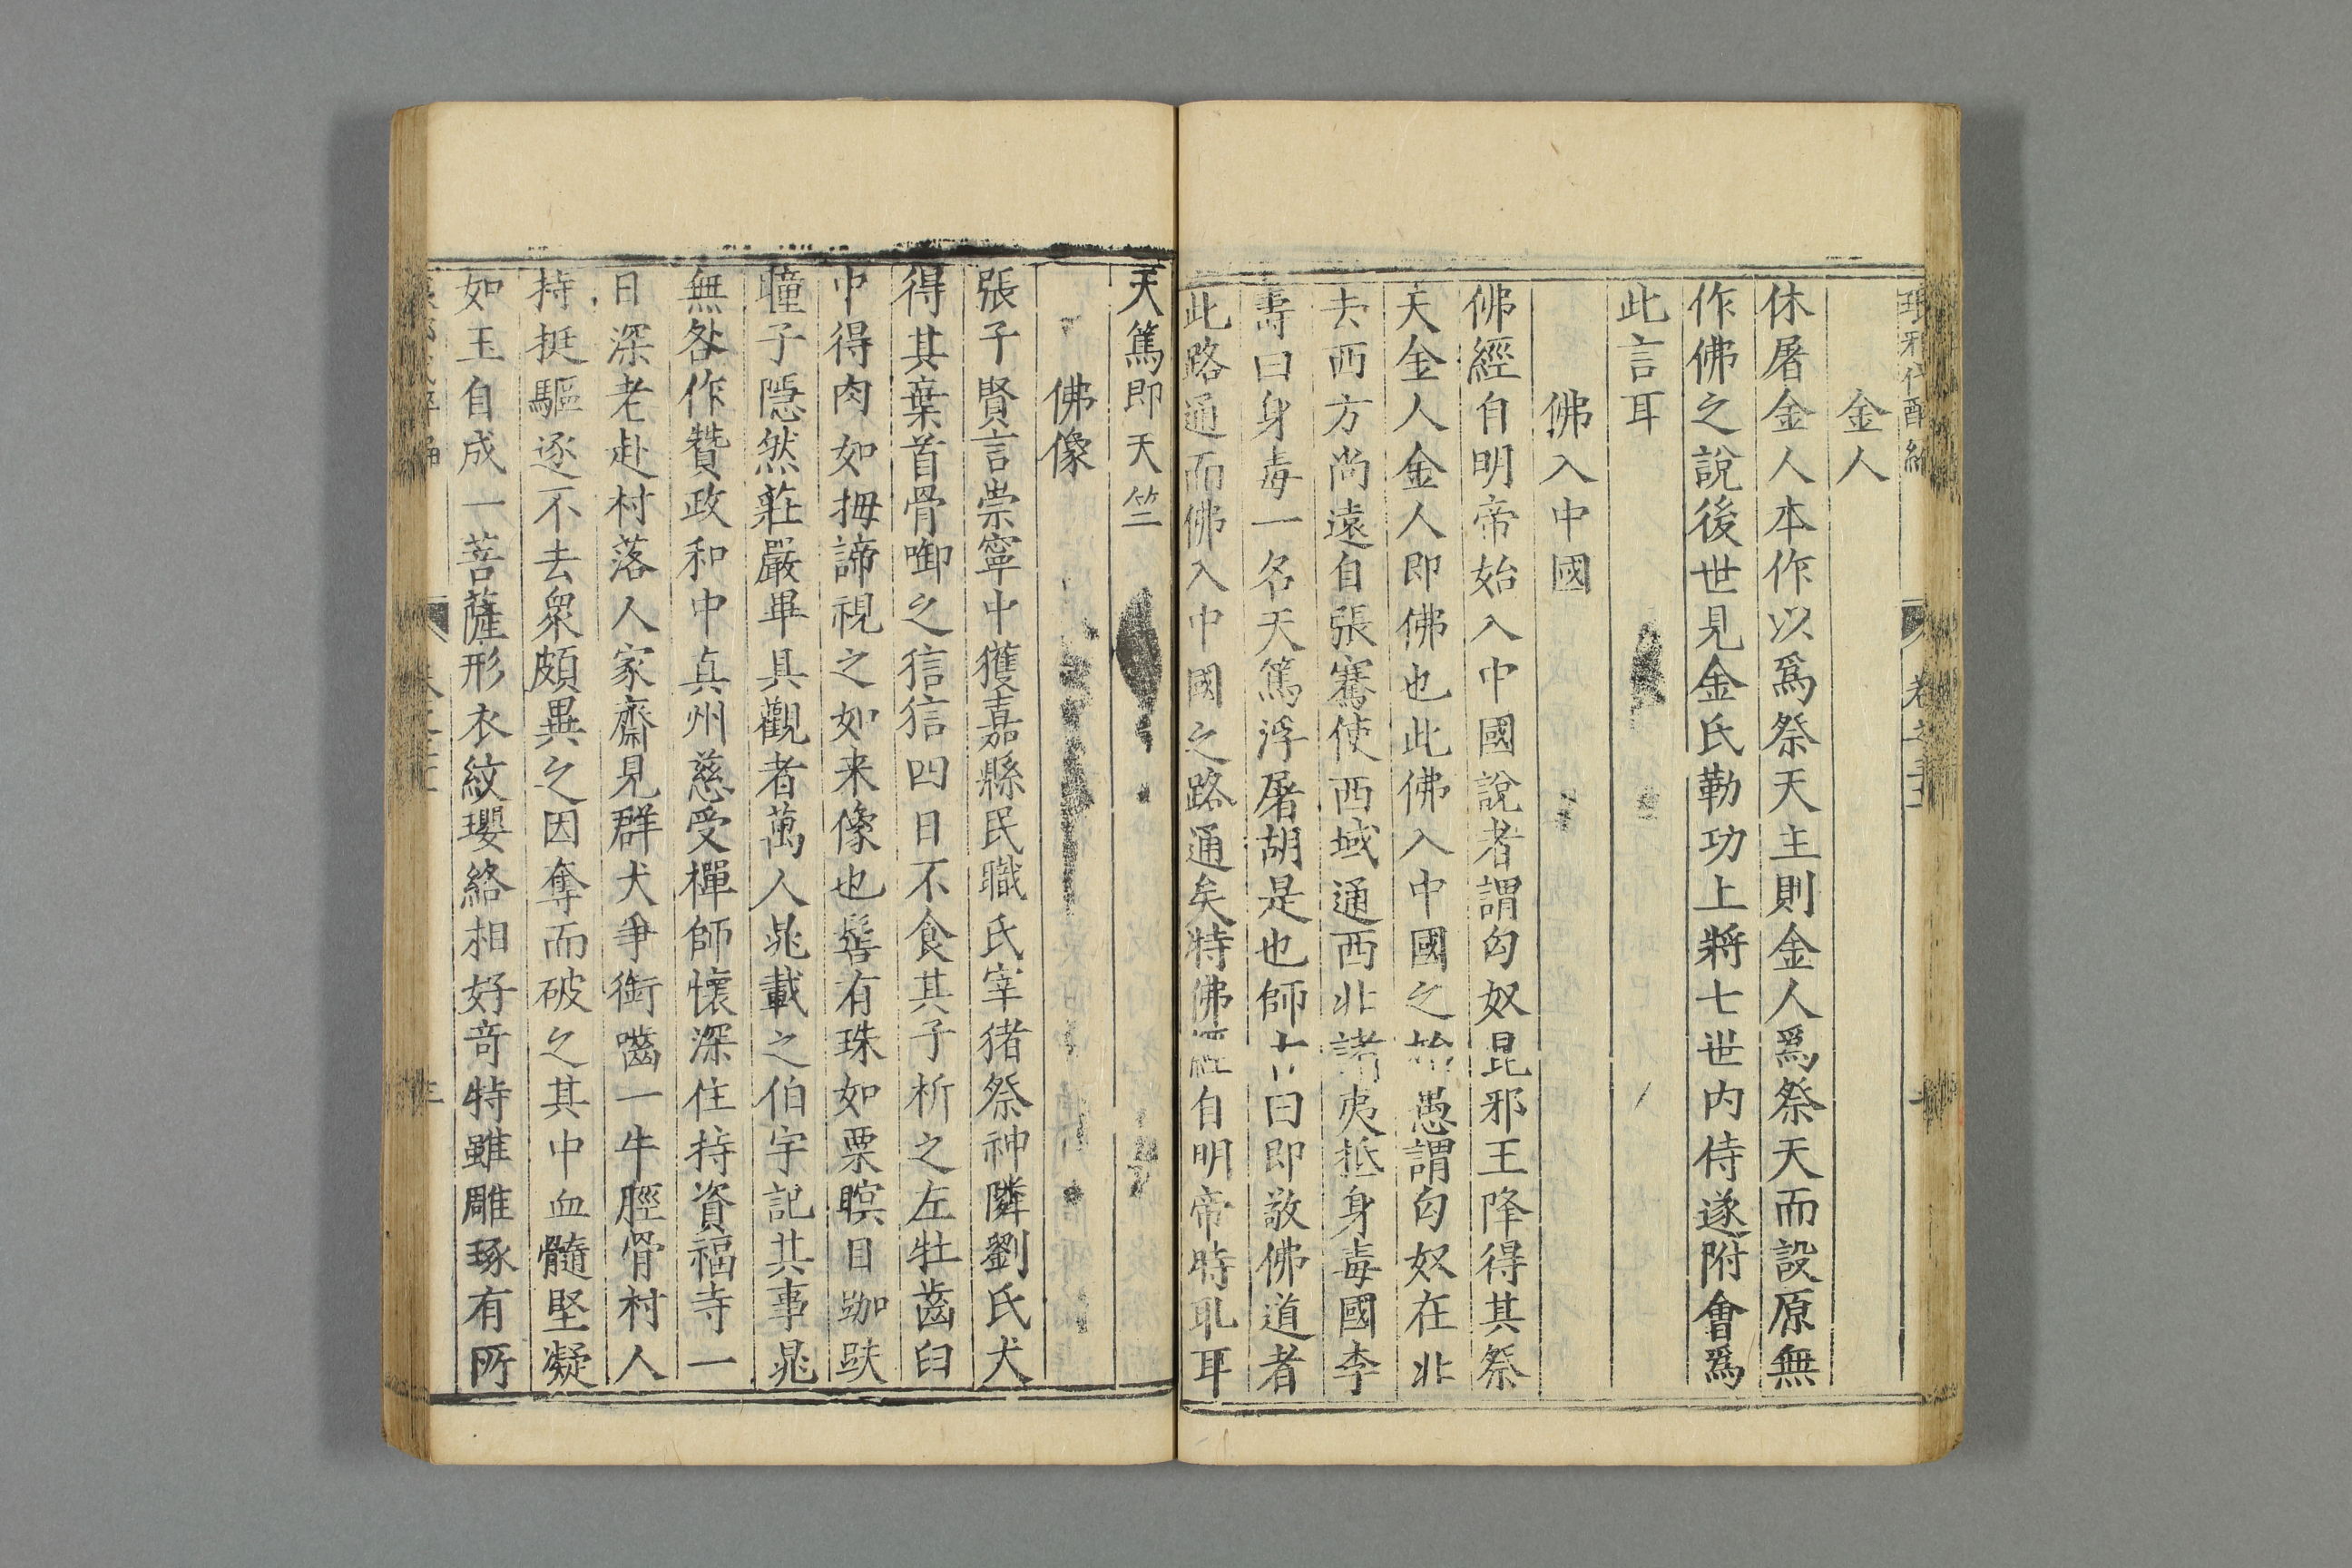 金人
休屠金人本作以爲祭天主則金人爲祭天而設原無
作佛之說後世見金氏勒功上將七世内侍遂附會爲
此言耳
佛入中國
佛經自明帝始入中國說者謂匈奴昆邪王降得其祭
天金人金人即佛也此佛入中國之始愚謂匈奴在北
去西方尚遠自張騫使西域通西北諸夷抵身毒國李
壽曰身毒一名天篤浮屠胡是也師古曰即敬佛道者
此路通而佛入中國之路通矣特佛經自明帝時取耳
天篤即天竺
佛像
張子賢言崇寧中獲嘉縣民職氏宰猪祭神隣劉氏犬
得其棄首骨啣之狺狺四日不食其子析之左牡齒臼
中得肉如拇諦視之如来像也髻有珠如栗瞑目跏趺
瞳子隱然莊嚴畢具觀者萬人晁載之伯宇記其事晁
無咎作贊政和中真州慈受禪師懷深住持資福寺一
日深老赴村落人家齋見群犬爭銜嚙一牛脛骨村人
持挺驅逐不去衆頗異之因奪而破之其中血髓堅凝
如玉自成一菩薩形衣紋瓔絡相好竒特雖雕琢有所